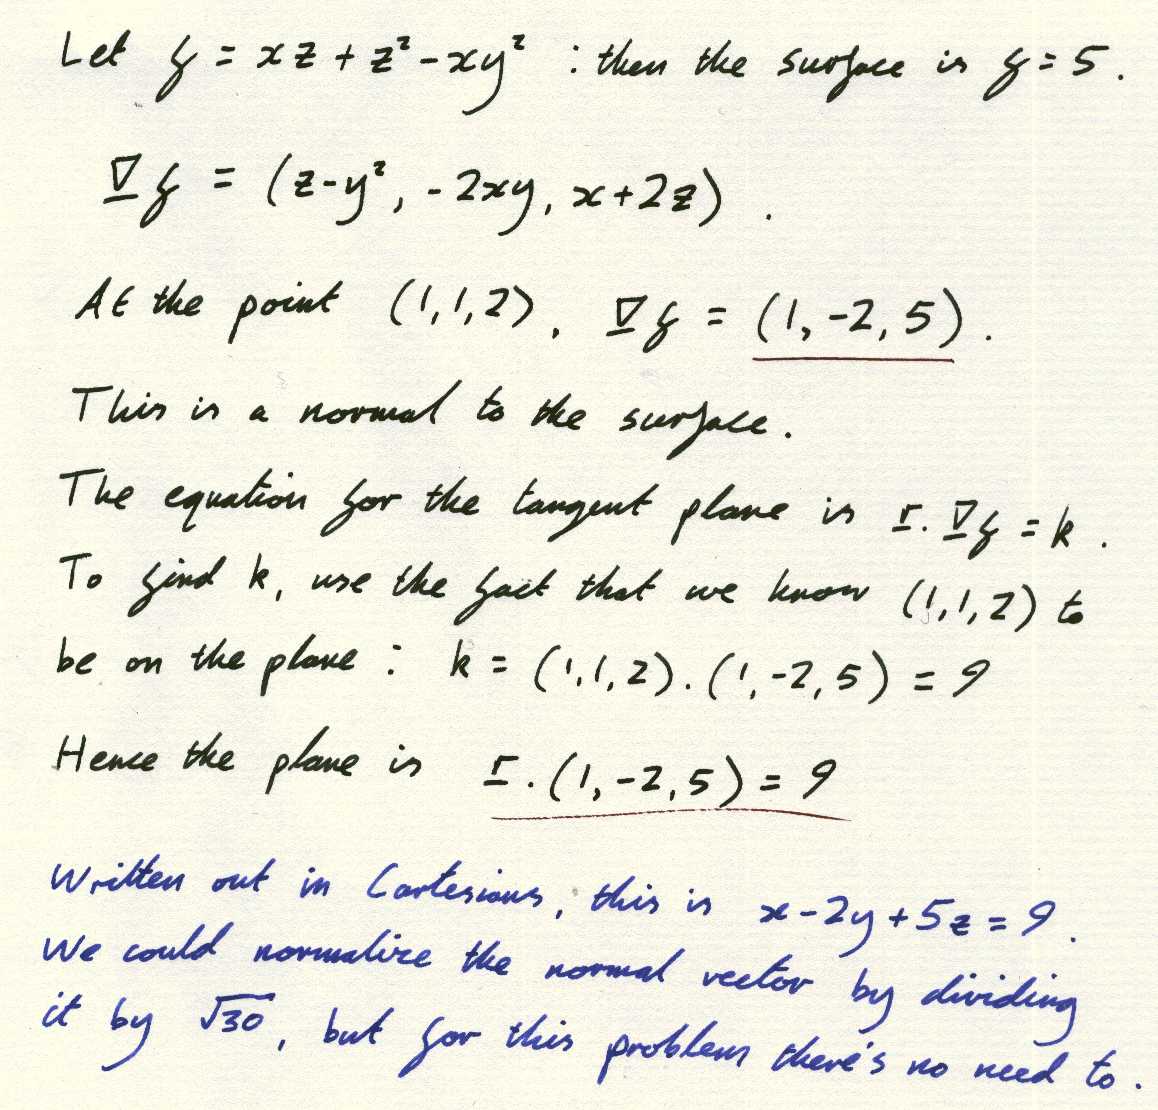 Let f = xz + z² - xy² : then the surface is f = 5.
∇f = (z-y², -2xy, x+2z).
At the point (1,1,2), ∇f = (1,-2,5).
This is a normal to the surface.
The equation for the tangent plane is r.∇f = k.
To find k, use the fact that we know (1,1,2) to
be on the plane : k = (1,1,2).(1,-2,5) = 9
Hence the plane is r.(1,-2,5) = 9
Written out in Cartesians, this is x-2y+5z = 9.
We could normalize the normal vector by dividing
it by √30, but for this problem there's no need to.